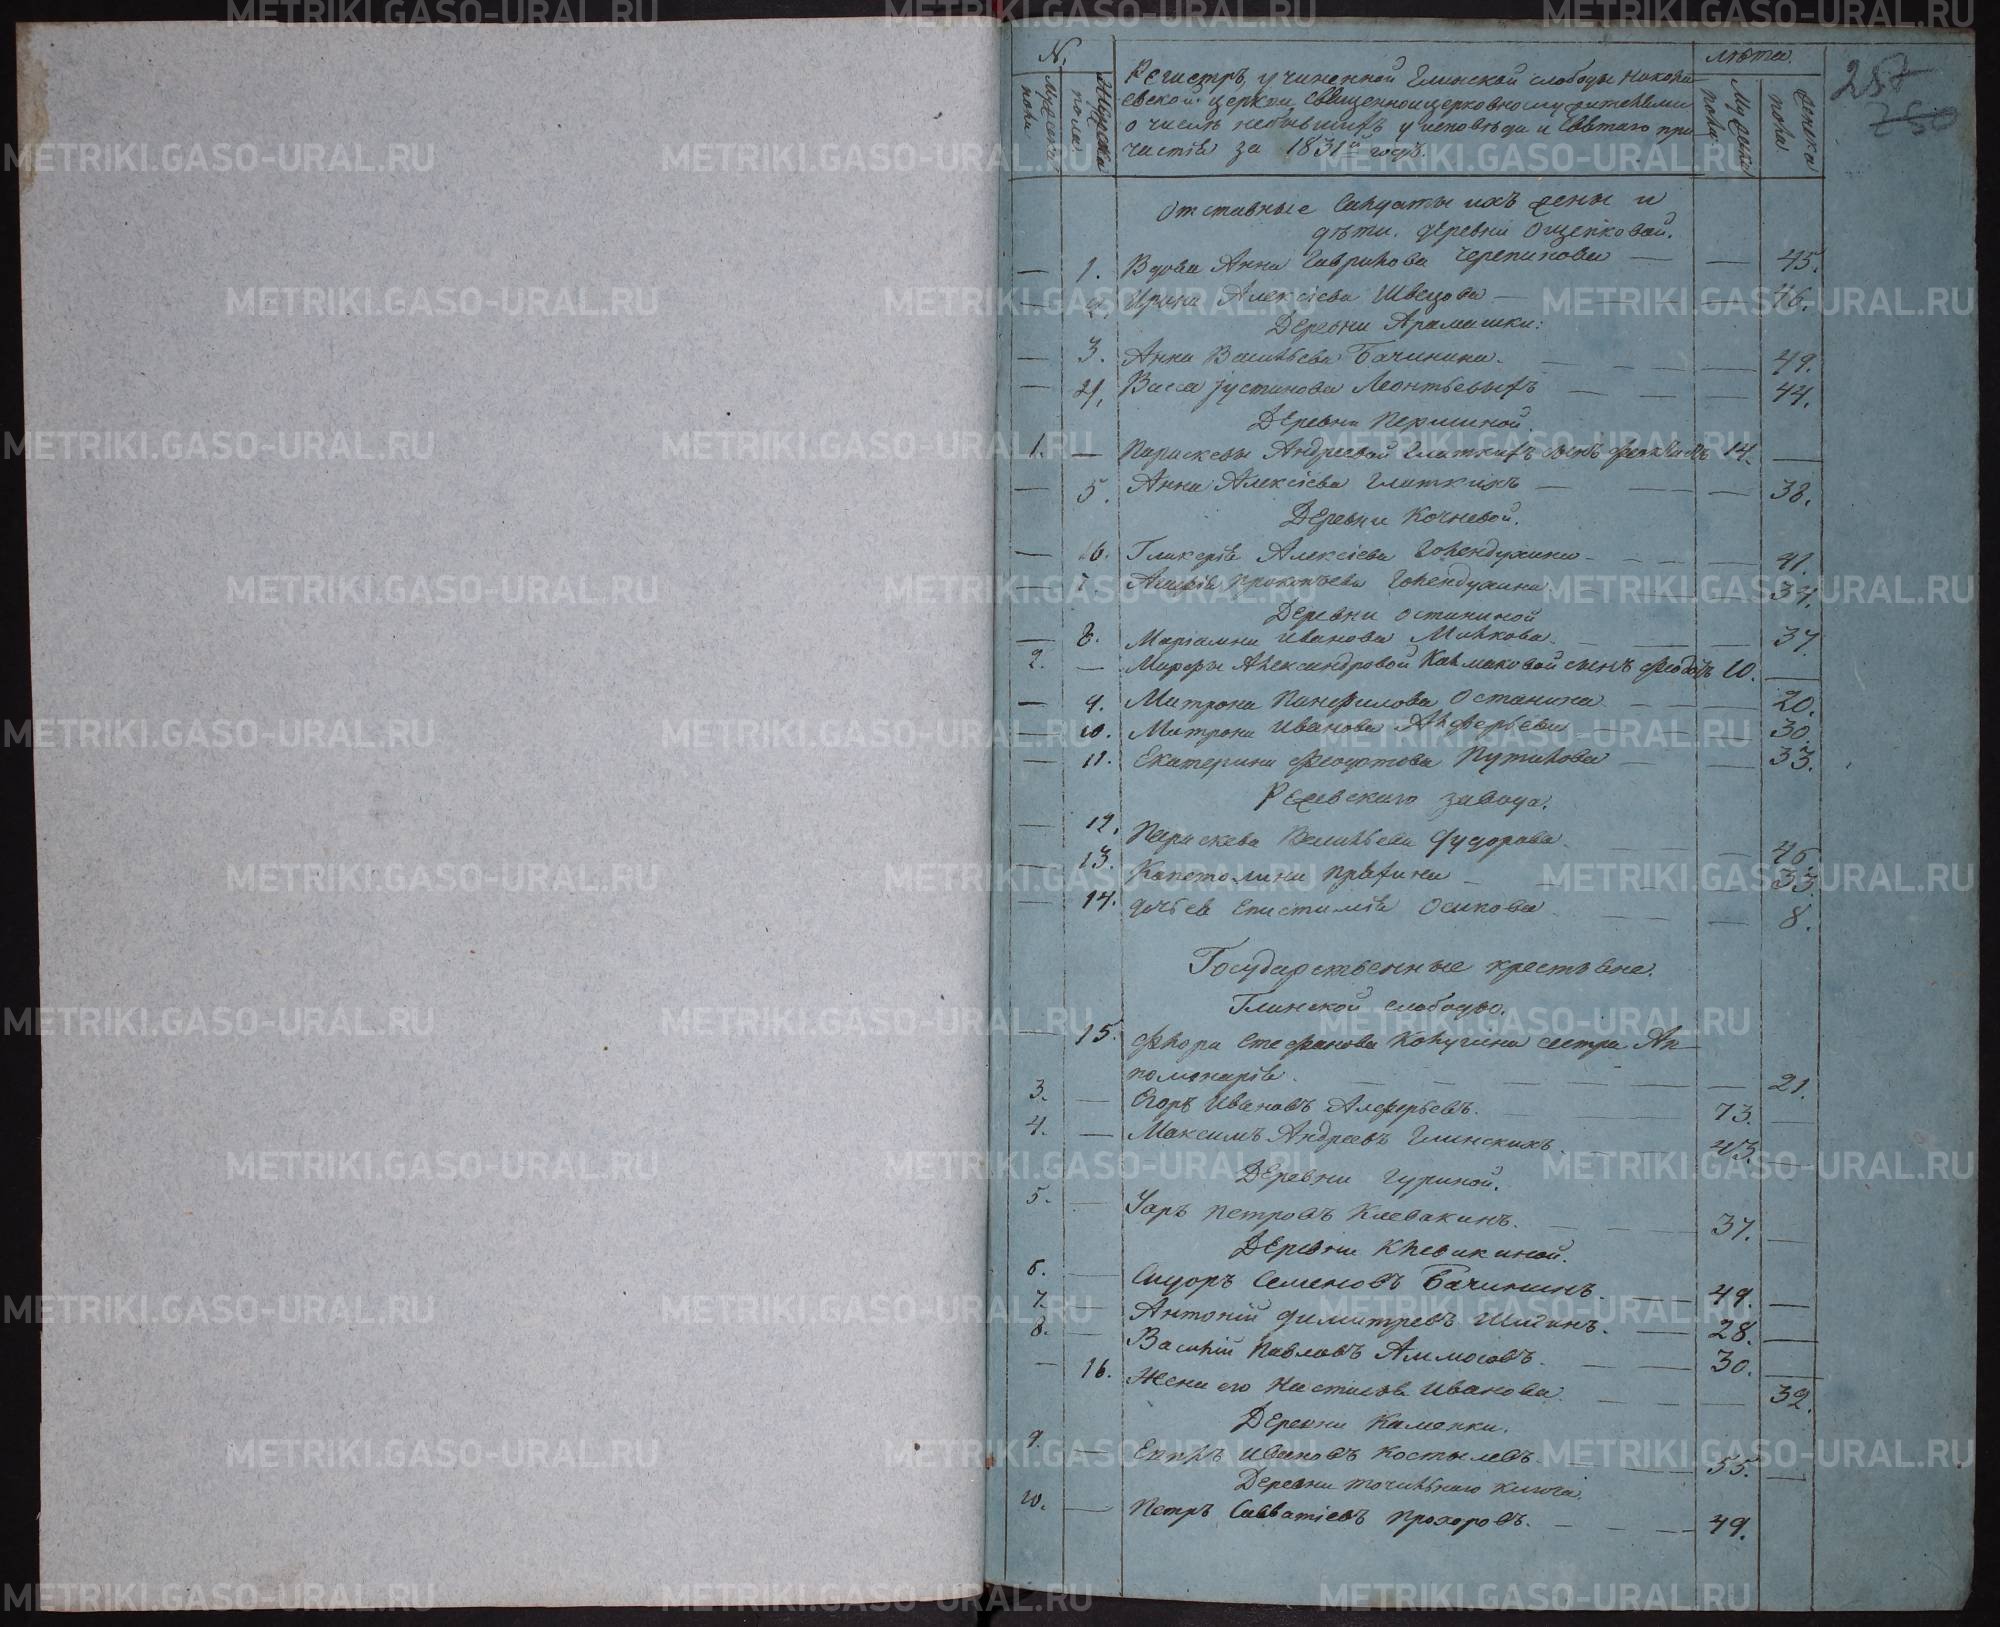 №
лѣта.
мужеска пола
Женска пола
Регистръ, учиненной Глинской слободы Никола-
евской церкви священноцерковнослужительми
о числѣ небывшихъ у исповѣди и святаго при-
частія за 1831й годъ.
Мужска пола
женска пола
257
750
Отставные салдаты ихъ жены и
дѣти. деревни Ощепковой.
— 1. Вдова Анна Гаврилова Черепанова — — 45.
— 2. Ирина Алексіева Швецова — — 46.
Деревни Арамашки:
— 3. Анна Васильева Бачинина — — 49.
— 4. Васса Іустинова Леонтьевыхъ — — 44.
Деревни Першиной.
1. — Параскевы Андреевой Глаткихъ сынъ 14. —
— 5. Анна Алексіева Глаткихъ — — 38.
Деревни Кочневой.
— 6. Гликерія Алексіева Голендухина — — 41.
— 7. Прокопьева Голендухина — — 34.
Деревни Останиной
— 8. Маріамна Иванова Малкова — — 37.
2. — Марфы Александровой Калмаковой сынъ Феодоръ 10. —
— 9. Матрона Панфилова Останина — — 20.
— 10. Матрона Иванова Алферьева — — 30.
— 11. Екатерина Путилова — — 33.
Режевскаго завода.
— 12. Параскева Федорова — — 46.
— 13. Капетолина — 33.
— 14. дочь ея Епистимія Осикова — — 8.
Государственные крестьяне.
Глинской слободы.
— 15. Флора Стефанова Колугина сестра Ап-
полинарія — — 21.
3. — Егоръ Ивановъ Алферьевъ. — 73. —
4. — Максимъ Андреевъ Глинскихъ. — 43. —
Деревни Гуриной.
5. — Уаръ Петровъ Клевакинъ. — 37. —
Деревни Клевакиной.
6. — Сидоръ Семеновъ Бачининъ. — 49. —
7. — Антоній Димитревъ — 28. —
8. — Василій Павловъ Аммосовъ. — 30. —
— 16. Жена его Настасья Иванова. — — 32.
Деревни Каменки.
9. — Ивановъ Костылевъ — 55. —
Деревни Точильнаго ключа.
10. — Петръ Савватіевъ Прохоровъ. — 49.
METRIKI.GASO-URAL.RU